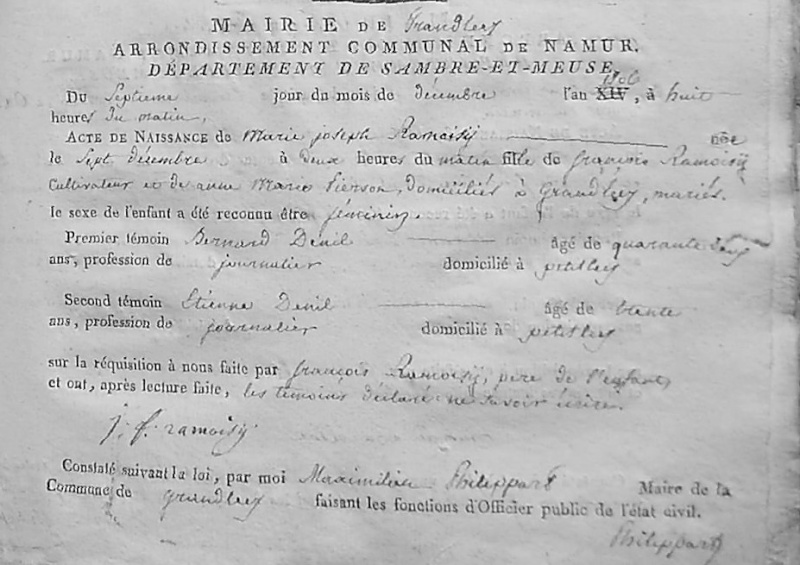 MAIRIE DE Grandleez
ARRONDISSEMENT COMMUNAL DE NAMUR.
DÉPARTEMENT DE SAMBRE-ET-MEUSE.
DU Septieme jour du mois de décembre l'an XIV 1806, à huit
heures du matin,
ACTE DE NAISSANCE de Marie joseph Ramoisy née
le Sept décembre à deux heures du matin fille de françois Ramoisy
Cultivateur et de anne Marie Pierson, domiciliés à grandleez, mariés.
le sexe de l'enfant a été reconnu être féminin.
Premier témoin Bernard Denil âgé de quarante
ans, profession de journalier domicilié à petitleez
Second témoin Etienne Denil âgé de trente
ans, profession de journalier domicilié à petitleez
sur la réquisition à nous faite par françois Ramoisy, pere de l'enfant,
et ont, après lecture faite, les temoins déclaré ne savoir écrire.
j. f. ramoisy
Constaté suivant la loi, par moi Maximilien Philippart Maire de la
Commune de grandleez faisant les fonctions d'Officier public de l'état civil.
Philippart